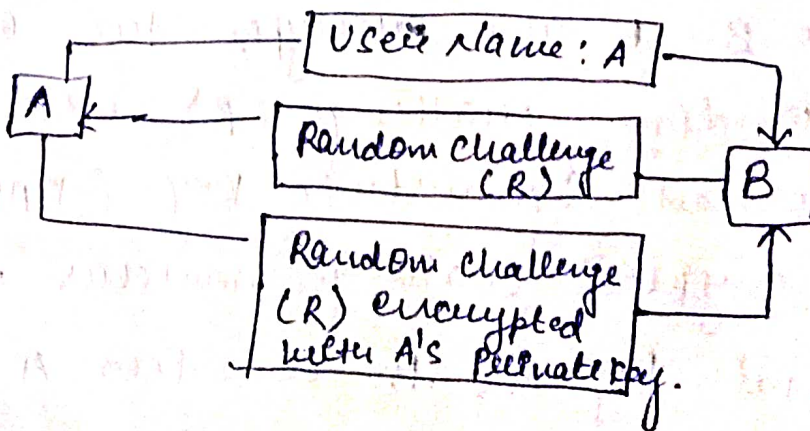 User Name : A
A
Random challenge
(R)
B
Random challenge
(R) encrypted
with A's Private key.